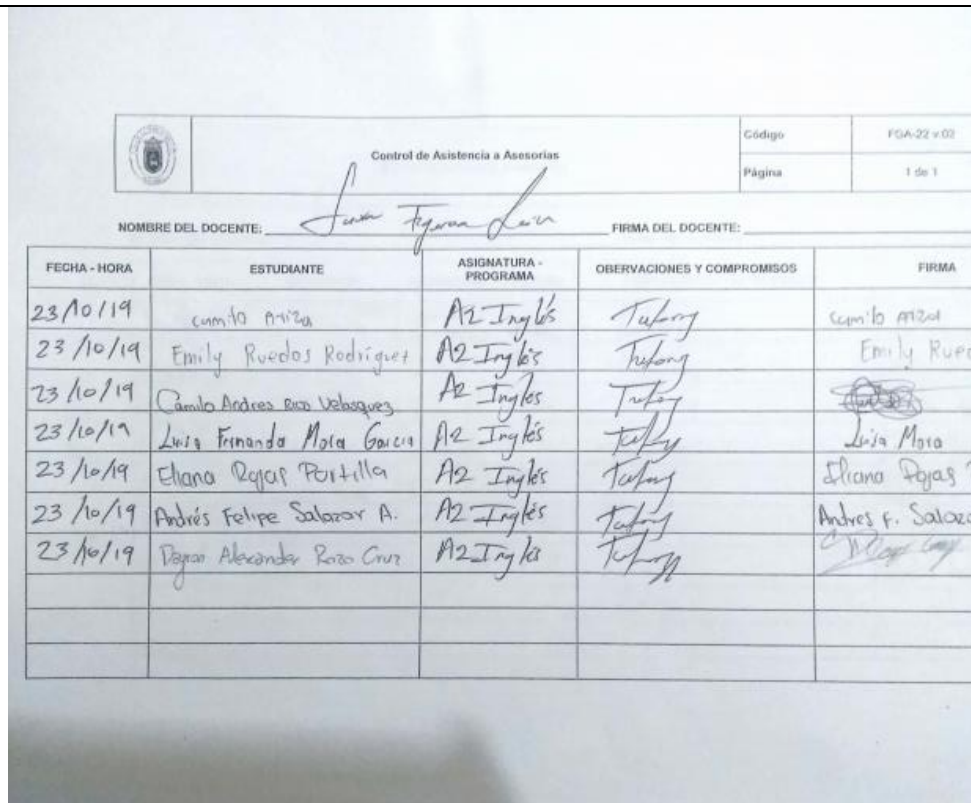 Control de Asistencia a Asesorías
Código FGA-22 v.03
Página 1 de 1
NOMBRE DEL DOCENTE: Figueroa FIRMA DEL DOCENTE:
FECHA - HORA ESTUDIANTE ASIGNATURA - PROGRAMA OBERVACIONES Y COMPROMISOS FIRMA
23/10/19 Camilo Ariza A2 Inglés Camilo Ariza
23/10/19 Emily Ruedos Rodríguez A2 Inglés Emily
23/10/19 Camilo Andres Rico Velasquez A2 Ingles
23/10/19 Luisa Fernanda Mora Garcia A2 Inglés Luisa Mora
23/10/19 Eliana Rojas Portilla A2 Inglés Eliana Rojas
23/10/19 Andrés Felipe Salazar A. A2 Inglés Andres F.
23/10/19 Alexander Rozo Cruz A2 Inglés